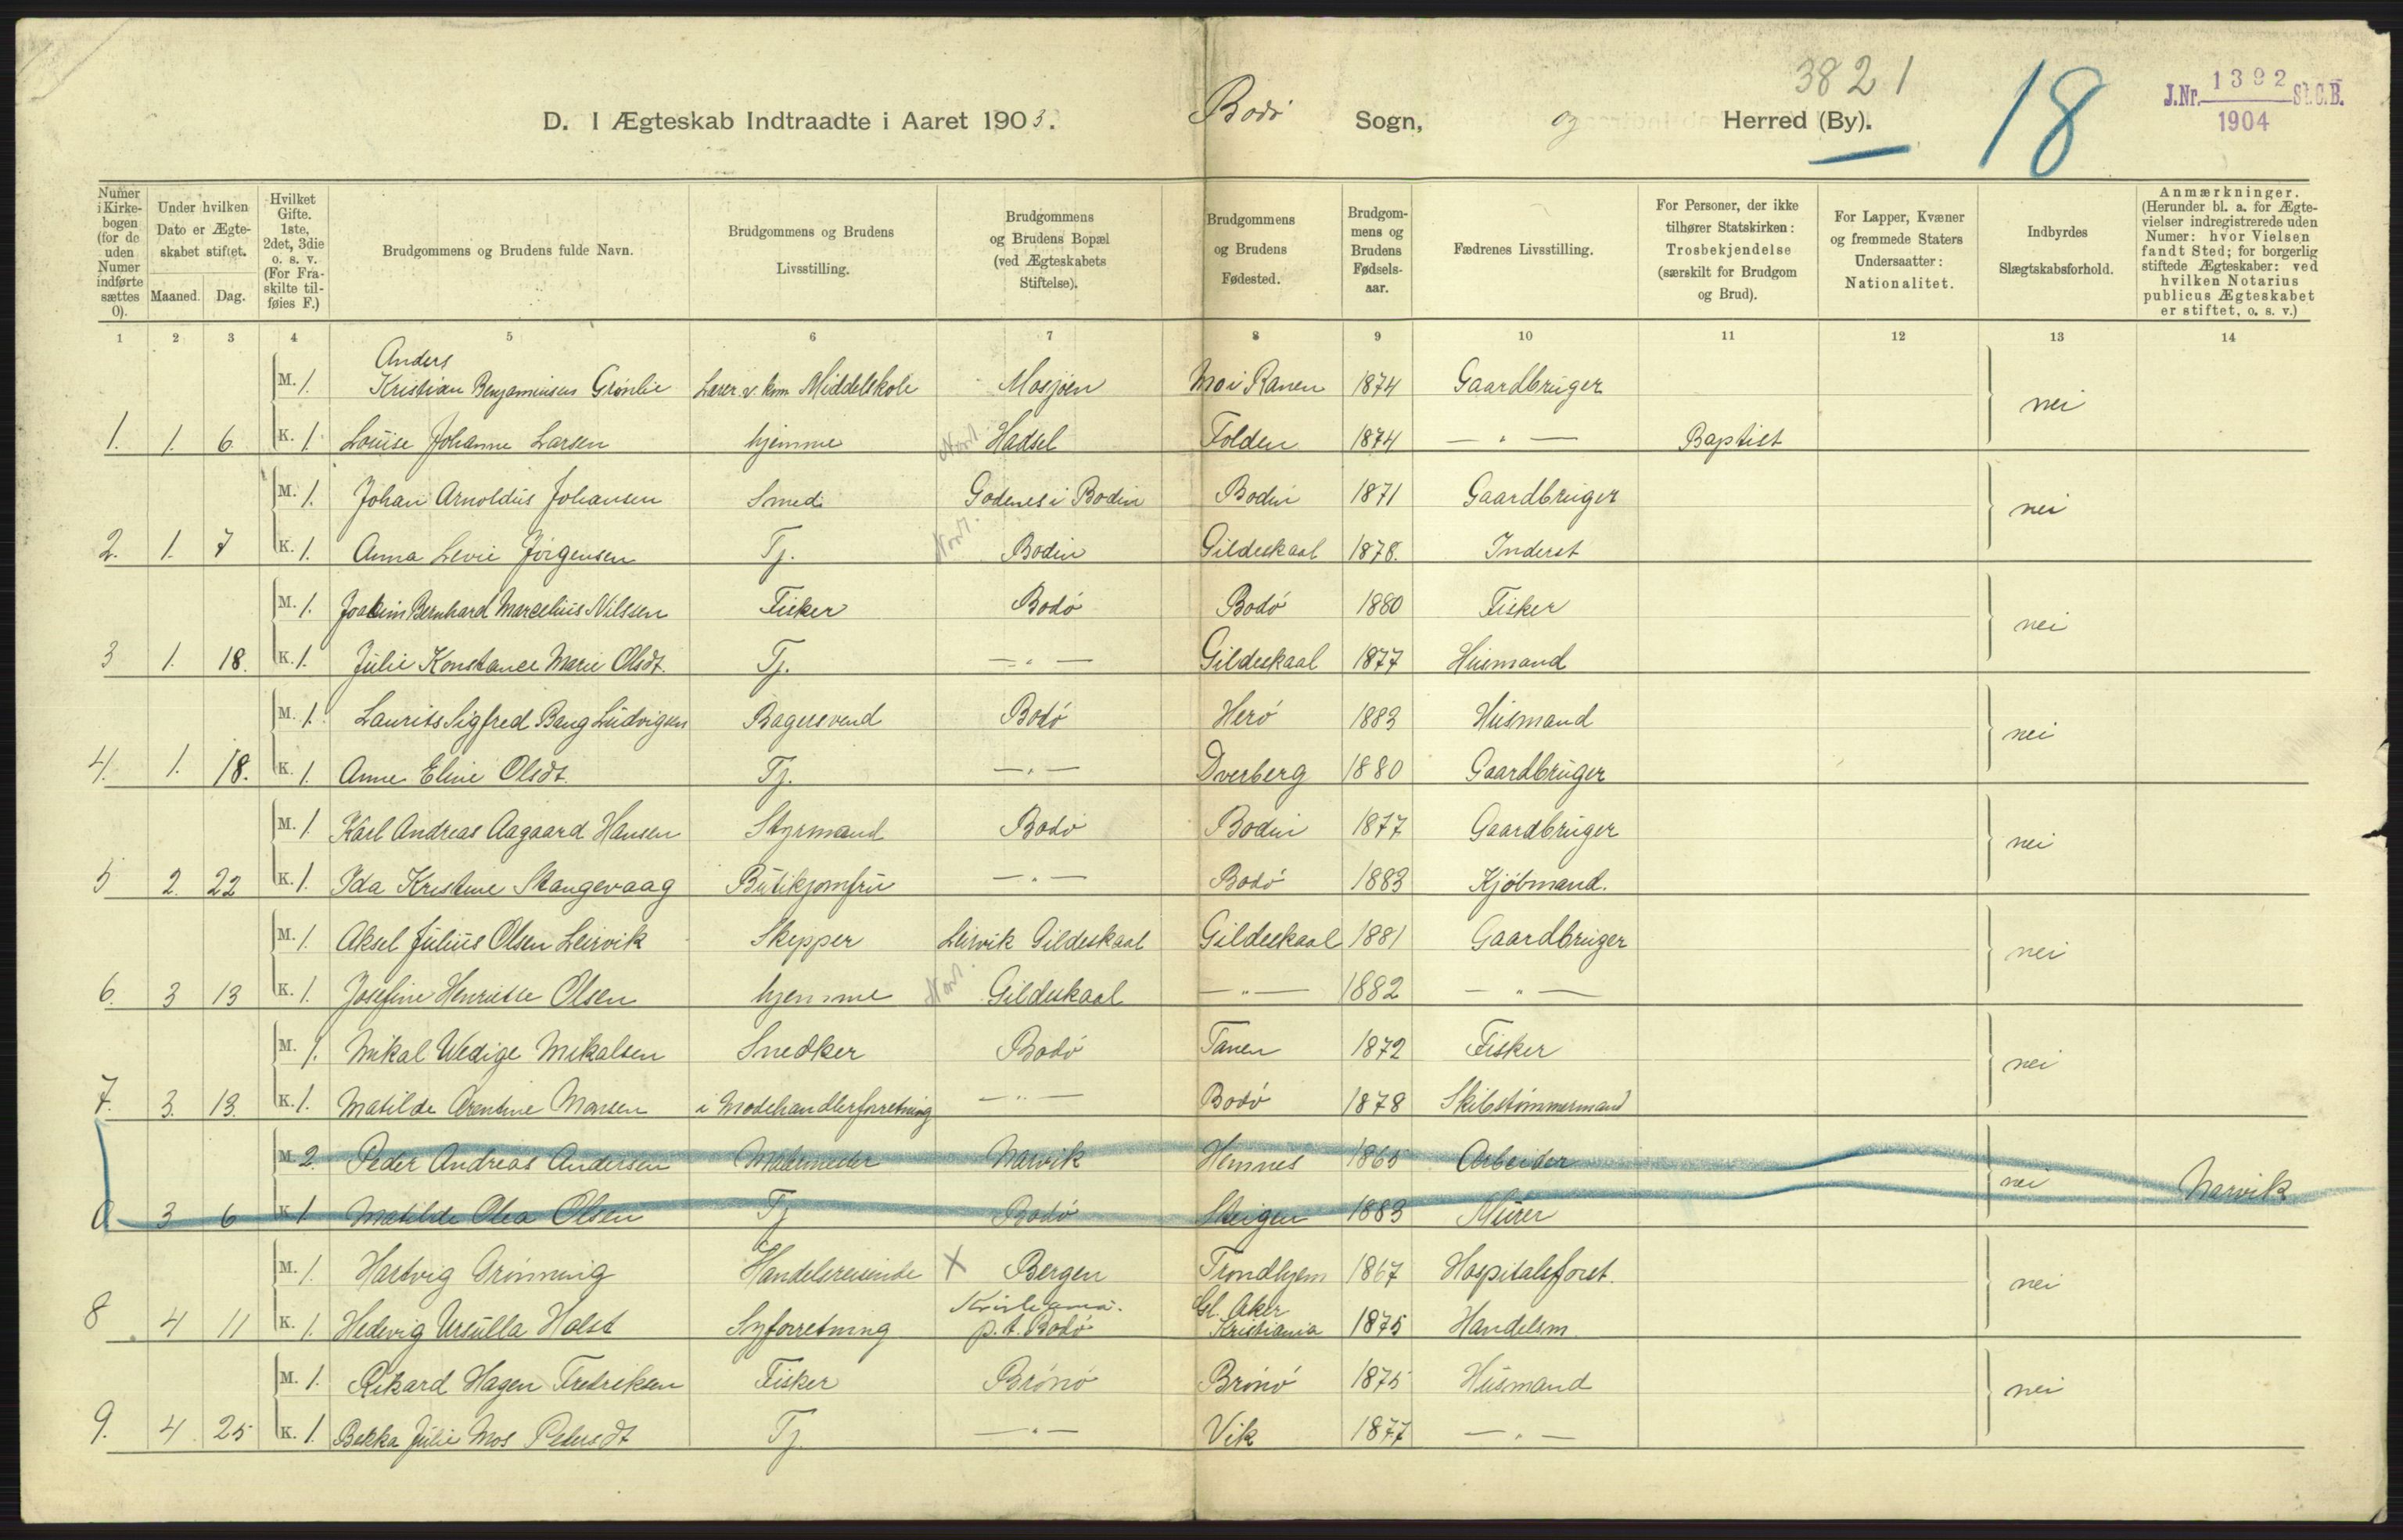 3821
18
J.Nr. 1392 St.C.B.
1904
D. I Ægteskab Indtraadte i Aaret 1903. Bodø Sogn, og Herred (By).
Numer i Kirkebogen (for de uden Numer indførte sættes 0).
Under hvilken Dato er Ægteskabet stiftet.
Maaned. Dag.
Hvilket Gifte. 1ste, 2det, 3die o. s. v. (For Fraskilte tilføies F.)
Brudgommens og Brudens fulde Navn.
Brudgommens og Brudens Livsstilling.
Brudgommens og Brudens Bopæl (ved Ægteskabets Stiftelse).
Brudgommens og Brudens Fødested.
Brudgommens og Brudens Fødselsaar.
Fædrenes Livsstilling.
For Personer, der ikke tilhører Statskirken: Trosbekjendelse (særskilt for Brudgom og Brud).
For Lapper, Kvæner og fremmede Staters Undersaatter: Nationalitet.
Indbyrdes Slægtskabsforhold.
Anmærkninger. (Herunder bl. a. for Ægtevielser indregistrerede uden Numer: hvor Vielsen fandt Sted; for borgerlig stiftede Ægteskaber: ved hvilken Notarius publicus Ægteskabet er stiftet, o. s. v.)
1 2 3 4 5 6 7 8 9 10 11 12 13 14
Anders
M. 1. Kristian Benjaminsen Grønlie Lærer v. kom Middelskole Mosjøen Mo i Ranen 1874 Gaardbruger nei
1. 1. 6. K. 1. Louise Johanne Larsen hjemme Nord. Hadsel Folden 1874 — " — Baptist
M. 1. Johan Arnoldus Johansen Smed Godenes i Bodin Bodin 1871 Gaardbruger nei
2. 1. 7 K. 1. Anna Levie Jørgensen Tj. Nordl. Bodin Gildeskaal 1878. Inderst
M. 1. Joakim Bernhard Marcelius Nilssen Fisker Bodø Bodø 1880 Fisker nei
3 1. 18. K. 1. Julie Konstance Marie Olsdt. Tj. — " — Gildeskaal 1877 Husmand
M. 1. Laurits Sigfred Bang Ludvigsen Bagersvend Bodø Herø 1883 Husmand nei
4. 1. 18. K. 1. Anne Eline Olsdt. Tj. — " — Dverberg 1880 Gaardbruger
M. 1. Karl Andreas Aagaard Hansen Styrmand Bodø Bodin 1877 Gaardbruger nei
5 2. 22 K. 1. Ida Kristine Stangevaag Butikjomfru — " — Bodø 1883 Kjøbmand.
M. 1. Aksel Julius Olsen Leirvik Skipper Leirvik Gildeskaal Gildeskaal 1881 Gaardbruger nei
6. 3 13 K. 1. Josefine Henriette Olsen hjemme Nord. Gildeskaal — " — 1882 — " —
M. 1. Mikal Wedige Mikalsen Snedker Bodø Tanen 1872 Fisker nei
7. 3. 13. K. 1. Matilde Arentine Monsen i Modehandlerforretning — " — Bodø 1878 Skibstømmermand
M. 2. Peder Andreas Andersen Malermester Narvik Hemnes 1865 Arbeider nei Narvik
0 3 6 K. 1 Matilde Olea Olsen Tj Bodø Steigen 1883 Murer
M. 1. Hartvig Grønning Handelsreisende X Bergen Trondhjem 1867 Hospitalsforst. nei
8 4 11 K. 1. Hedevig Ursulla Holst Syforretning Kristiania. p.t. Bodø Gl. Aker Kristiania 1875 Handelsm.
M. 1. Rikard Hagen Fredriksen Fisker Brønø Brønø 1875 Husmand nei
9. 4 25 K. 1. Bekka Julie Mos Petersdt Tj. — " — Vik 1877 — " —